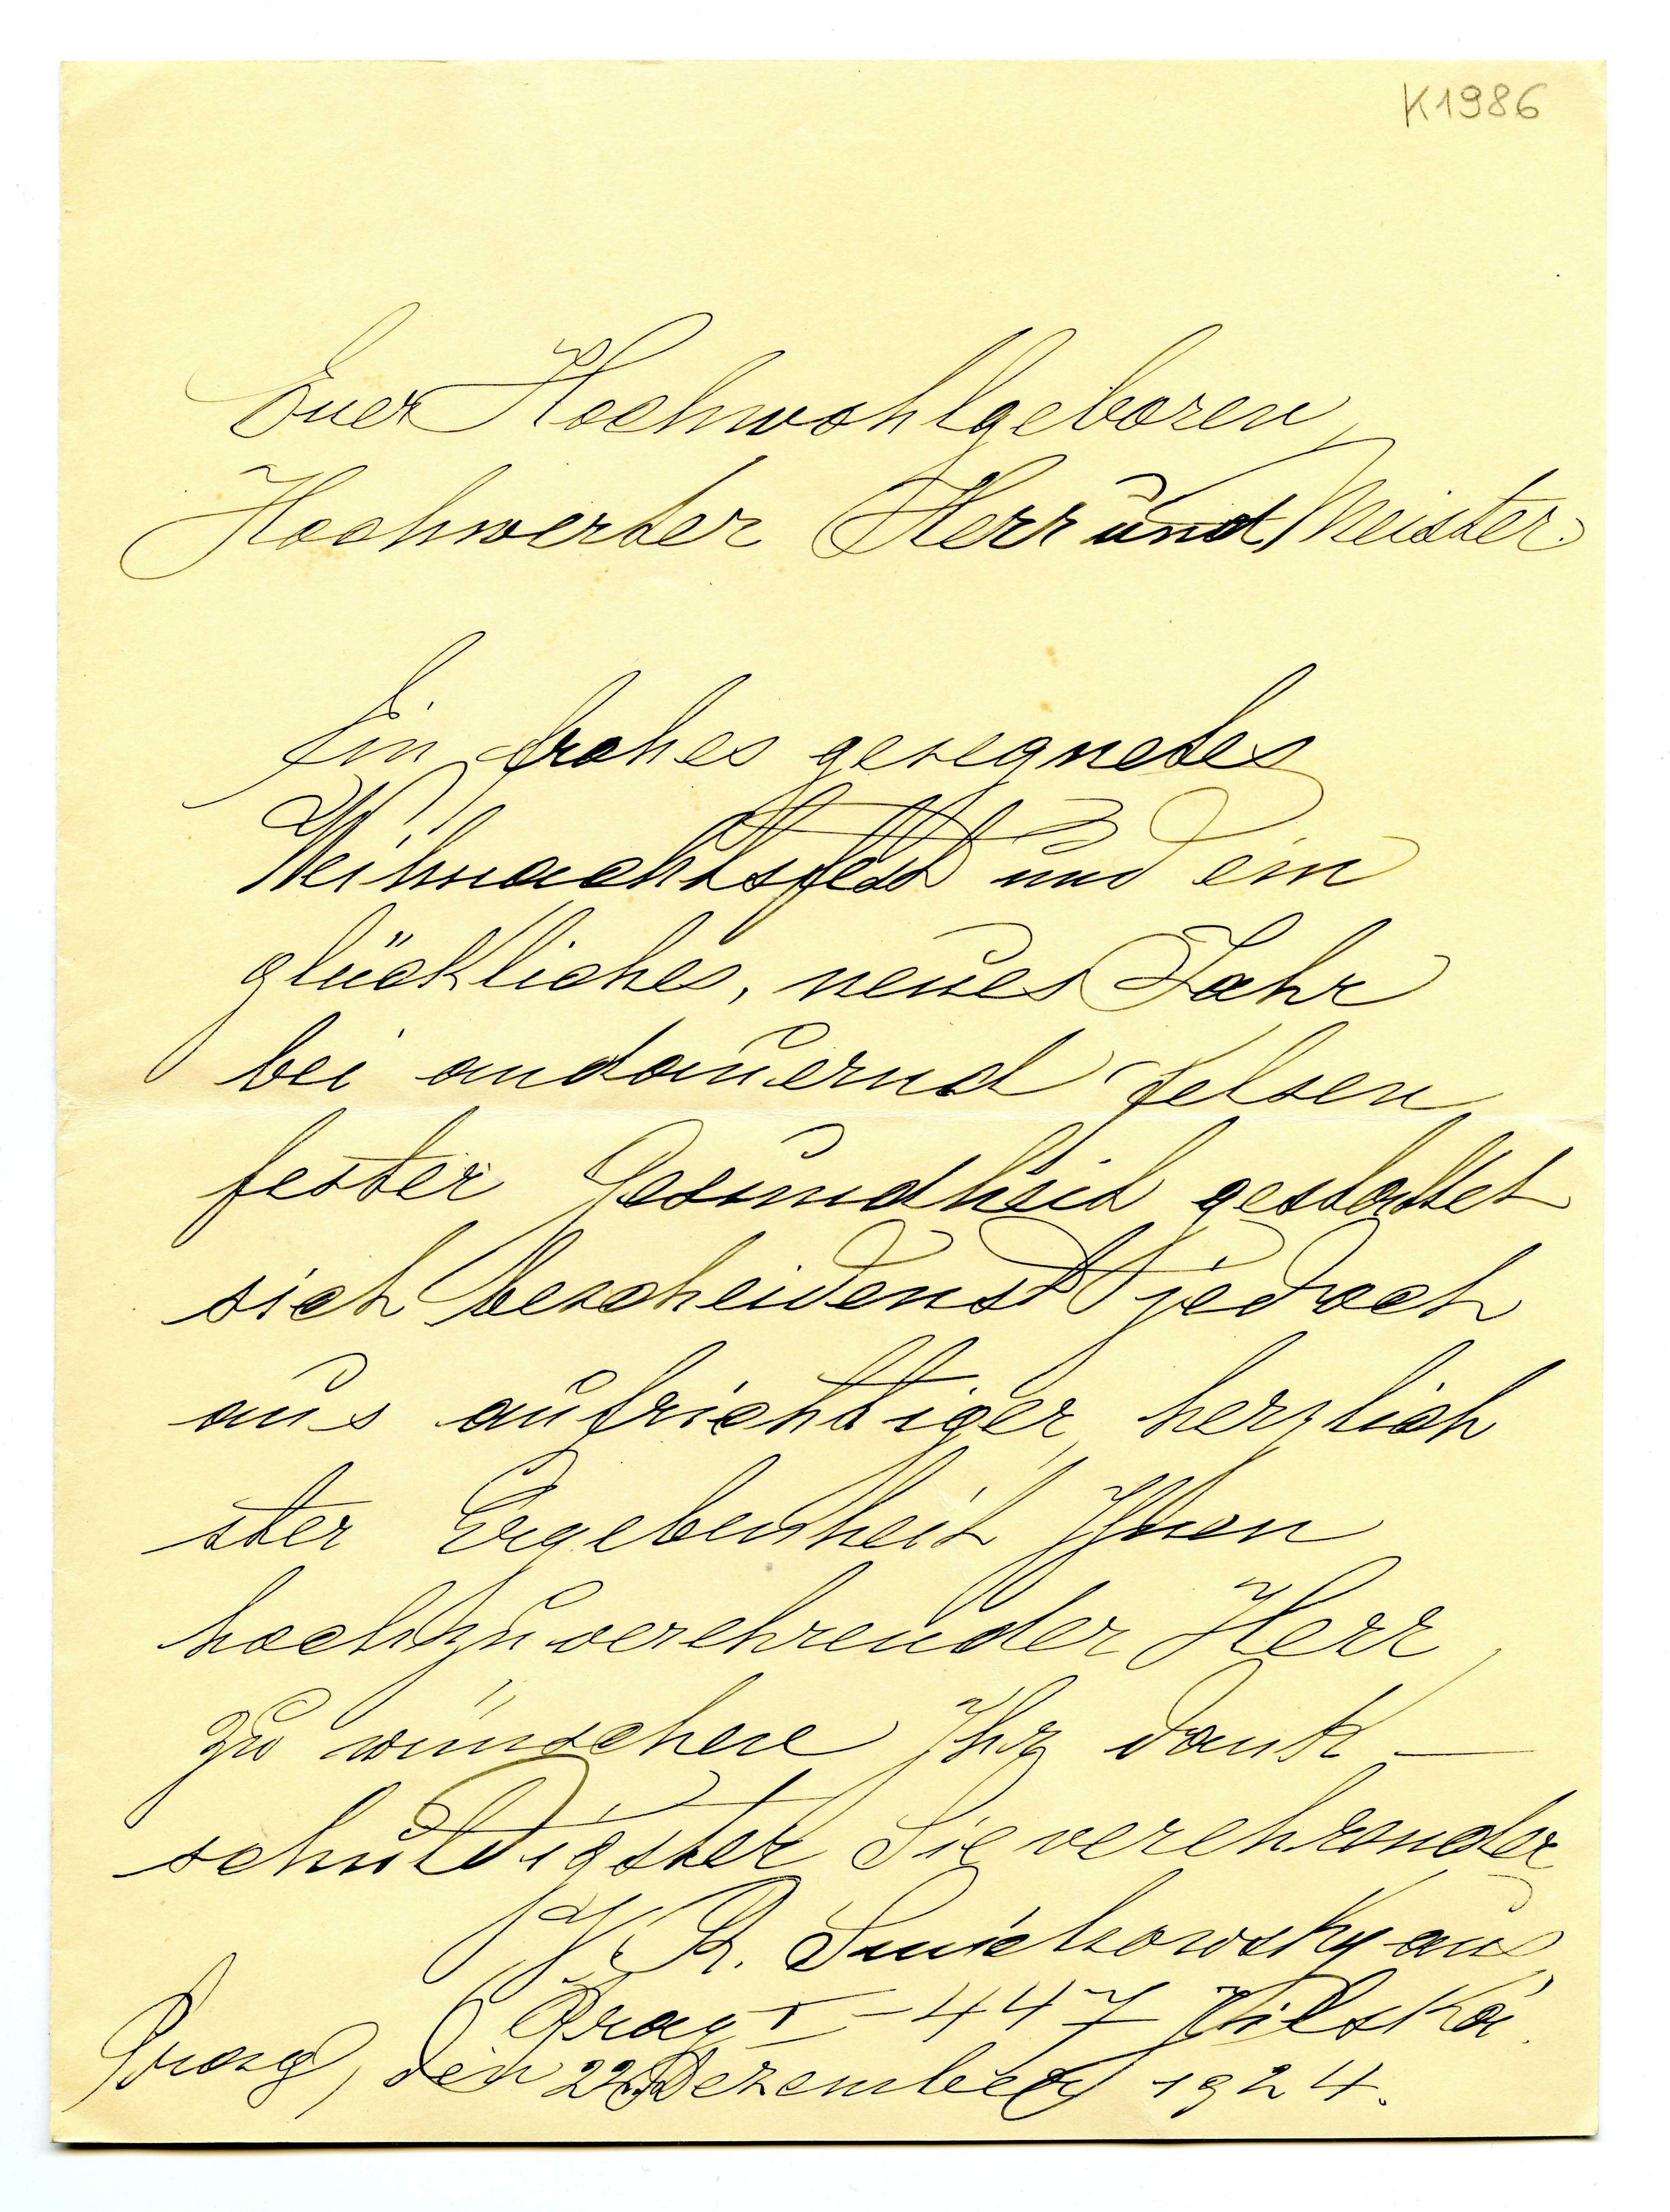 K1986
Euer Hochwohlgeboren,
Hochwerter Herr und Meister.
Ein frohes gesegnetes
Weihnachtsfest und ein
glückliches, neues Jahr
bei andauernd felsen
fester Gesundheit gestattet
sich bescheidenst jedoch
aus aufrichtiger, herzlich
ster Ergebenheit Ihnen
hochzuverehrender Herr
zu wünschen Ihr dank –
schuldigster Sie verehrender
V. R. Smichowsky aus
Prag I – 447 Jilská.
Prag, den 22. Dezember 1924.